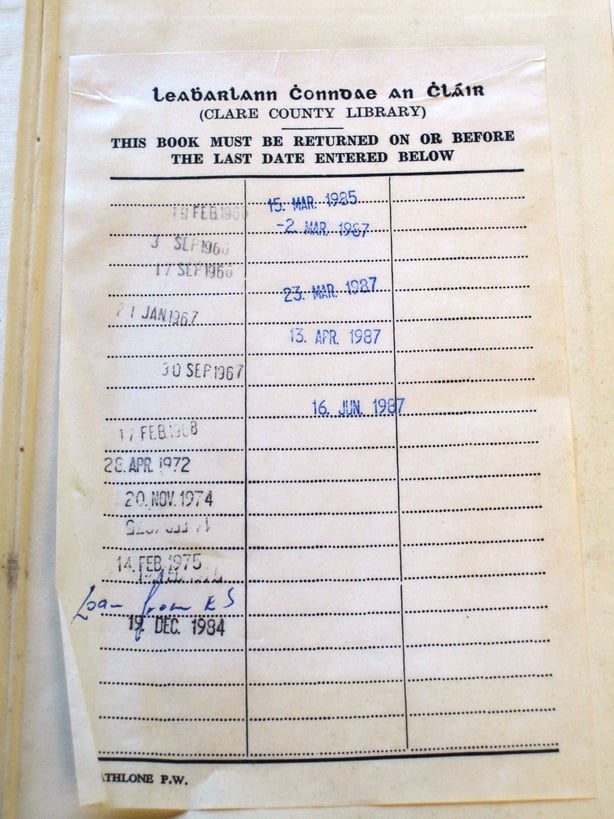 Leaḃarlann Ċonndae an Ċláir
(CLARE COUNTY LIBRARY)
THIS BOOK MUST BE RETURNED ON OR BEFORE
THE LAST DATE ENTERED BELOW
FEB 196
3 SEP 196
17 SEP 1966
21 JAN 1967
30 SEP 1967
17 FEB. 1968
28. APR. 1972
20. NOV. 1974
14. FEB. 1975
Loan from
19. DEC. 1984
15. MAR. 1985
-2. MAR. 1987
23. MAR. 1987
13. APR. 1987
16. JUN. 1987
ATHLONE P.W.